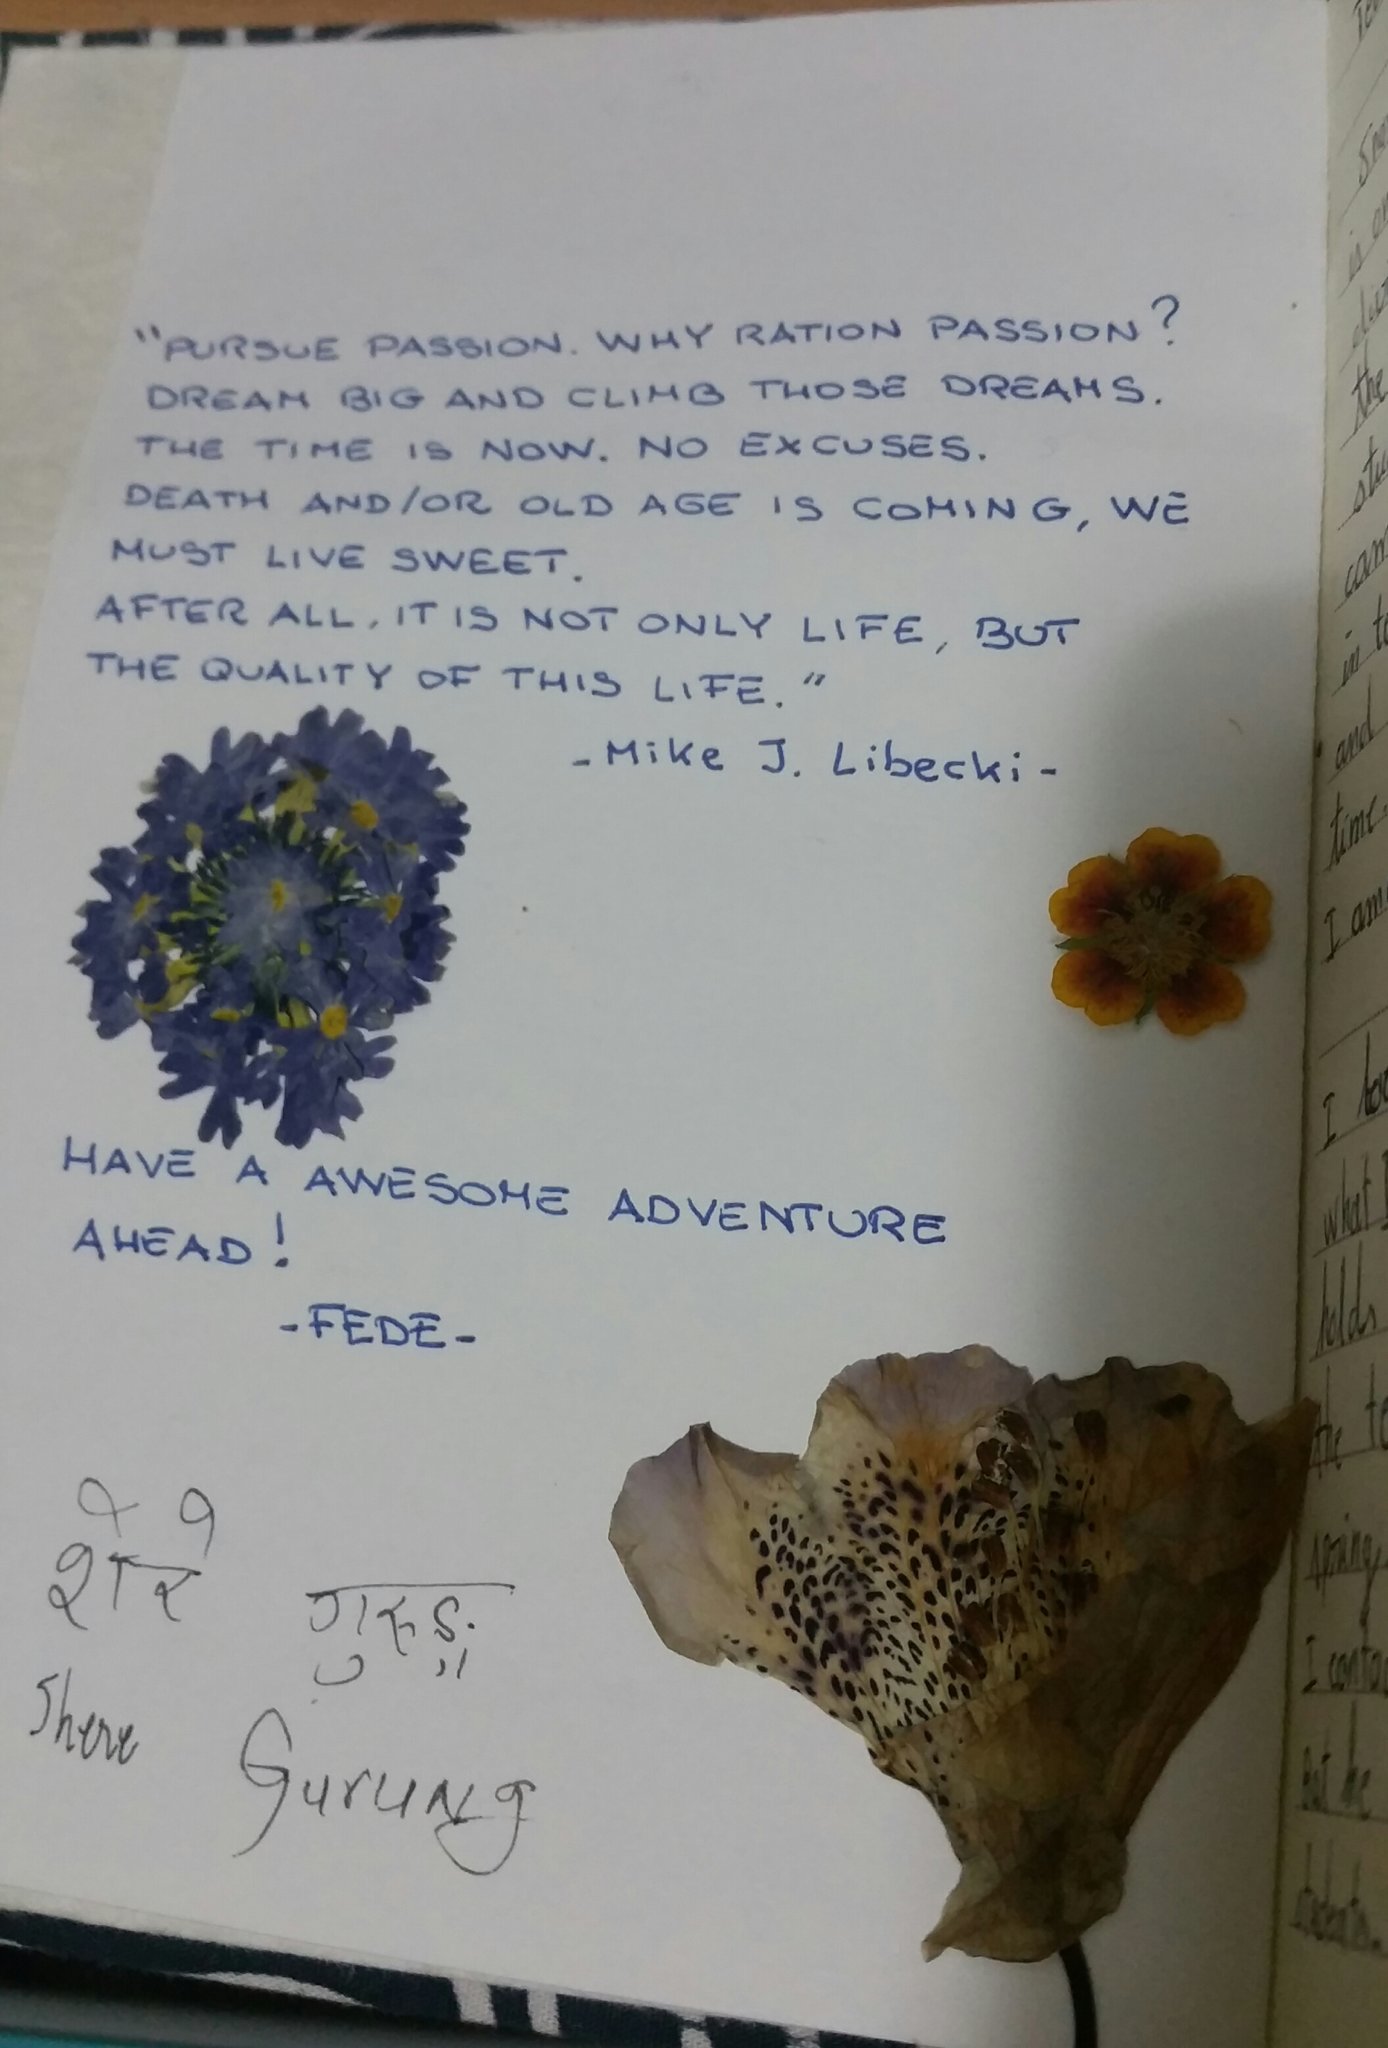 "PURSUE PASSION. WHY RATION PASSION?
DREAM BIG AND CLIMB THOSE DREAMS.
THE TIME IS NOW. NO EXCUSES.
DEATH AND/OR OLD AGE IS COMING, WE
MUST LIVE SWEET.
AFTER ALL, IT IS NOT ONLY LIFE, BUT
THE QUALITY OF THIS LIFE."
- Mike J. Libecki -
HAVE A AWESOME ADVENTURE
AHEAD!
- FEDE -
गुरुङ्ग
Shere
Gurung
the
and
time.
I am
I
what I
holds
the
spring
I
But he